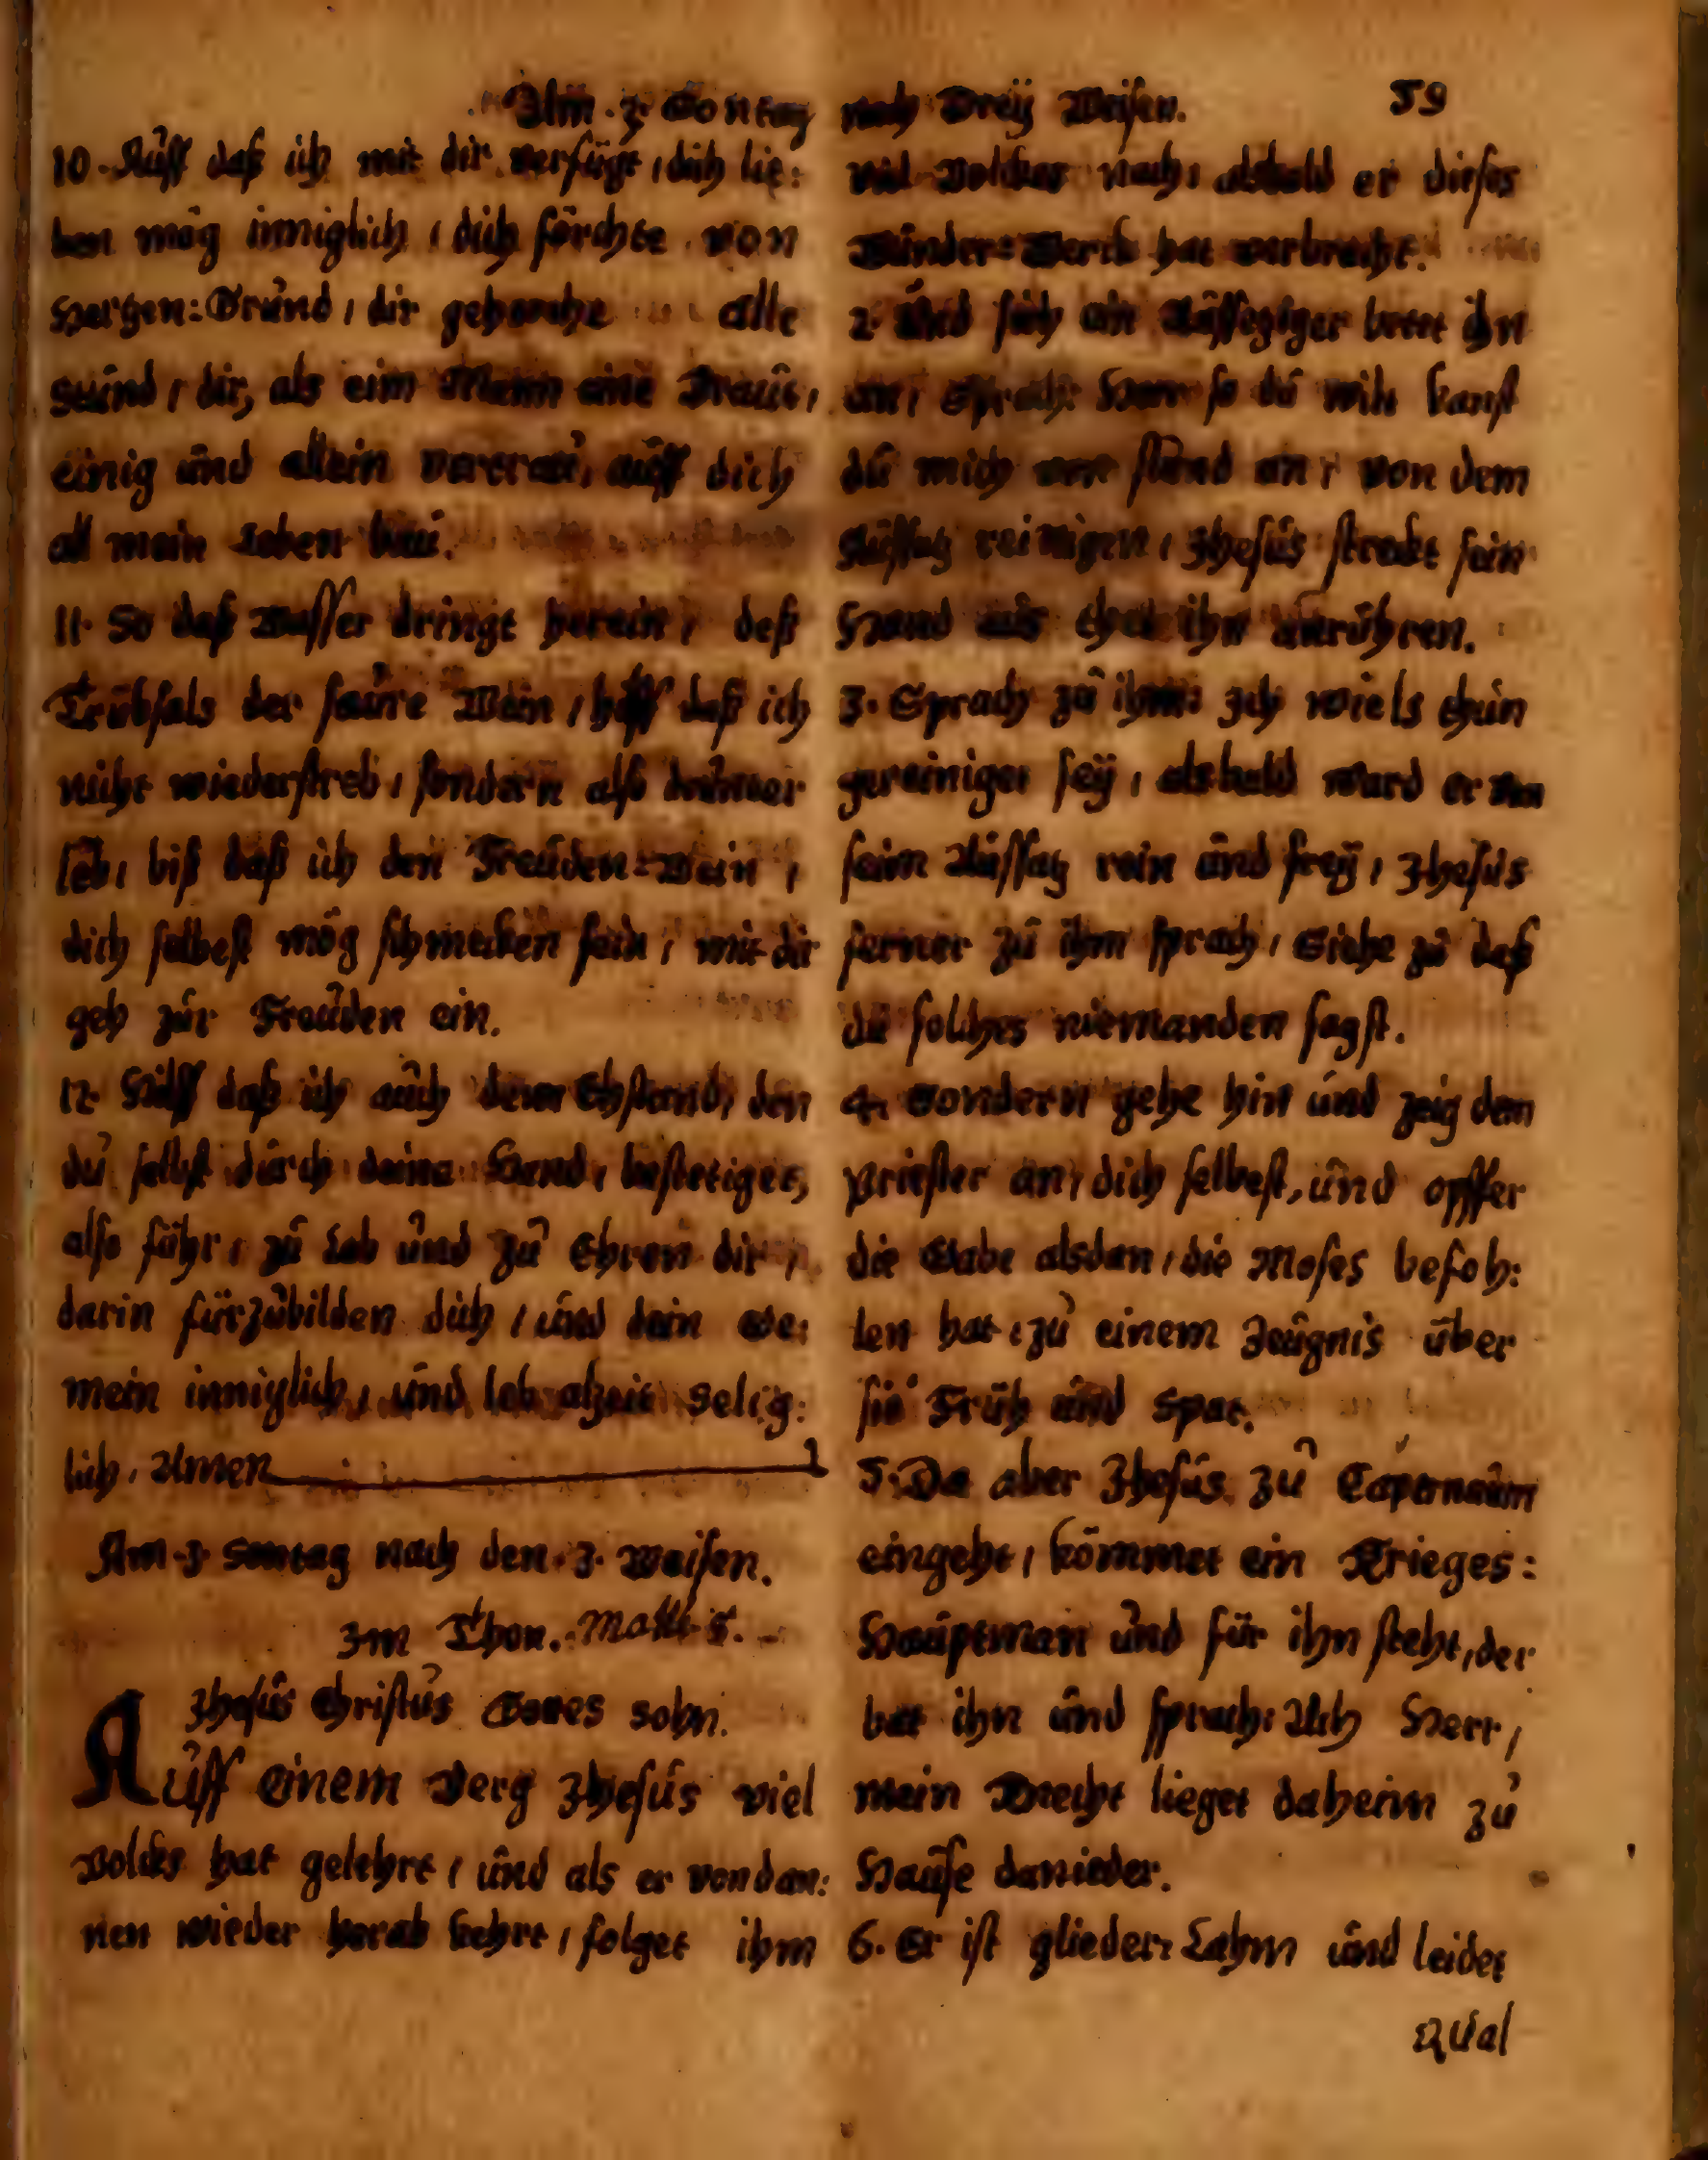 Am. 3. Sontag nach Dreÿ Weisen. 59
10. Auff daß ich mit dir verfügt, dich lie:
ben mög inniglich, dich förchte von
Hertzen: Grund, dir gehorche alle
Stund, dir, als eim Mann eine Braut,
einig und allein vertrau, auff dich
all mein Leben bau.
11. So daß Wasser dringt herein, deß
Trübsals der saure Wein, hilff daß ich
nicht wiederstreb, sondern also
leb, biß daß ich den Freuden=Wein,
dich selbest mög schmecken fein, mit dir
geh zur Freuden ein.
12. Hilff daß ich auch den Ehstand, den
du selbst durch deine Hand, bestetiget,
also führ, zu Lob und zu Ehren dir,
darin fürzubilden dich, und dein Ge:
mein inniglich, und leb alzeit Selig:
lich, Amen
Am. 3. Sontag nach den. 3. Weisen.
Im Thon. Matth. 8.
Jhesus Christus Gottes Sohn.
Auff einem Berg Jhesus viel
Volckes hat gelehrt, und als er von dan:
nen wieder herab kehrt, folget ihm
viel Volckes nach, alsbald er dieses
Wunder=Werck hat verbracht.
2. Und sich ein Aussetziger bettet ihn
an, Sprach: Herr so du wilt kanst
du mich von stund an, von dem
Aussatz reinigen, Jhesus streckt sein
Hand aus thet ihn anrühren.
3. Sprach zu ihm: Ich wiels thun
gereiniget seÿ, alsbald ward er von
seim Aussatz rein und freÿ, Jhesus
ferner zu ihm sprach, Siehe zu daß
du solches niemanden sagst.
4. Sondern gehe hin und zeig dem
Priester an, dich selbest, und opffer
die Gabe alsdan, die Moses befoh:
len hat, zu einem Zeugnis über
sie Früh und Spat.
5. Da aber Jhesus zu Capernaum
eingeht, kömmet ein Krieges:
Hauptman und für ihn steht, der
bat ihn und sprach: Ach Herr,
mein Knecht lieget daheim zu
Hause danieder.
6. Er ist glieder: Lahm und leidet
Qual